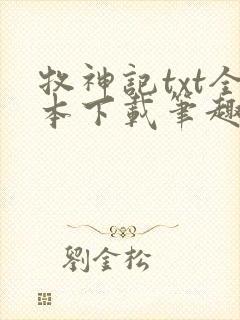 牧神記txt全
本下載筆趣
劉金松